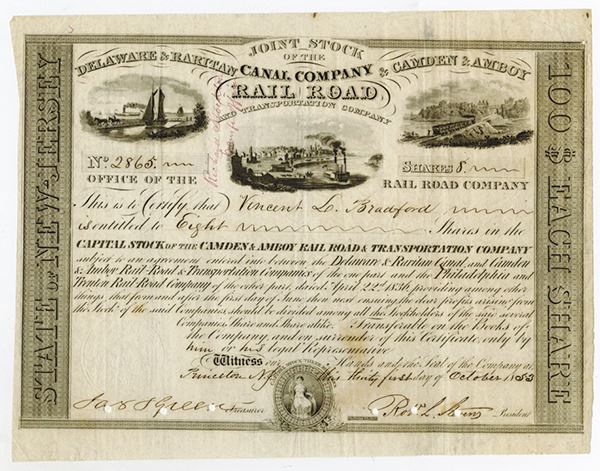 JOINT STOCK
OF THE
DELAWARE & RARITAN CANAL COMPANY & CAMDEN & AMBOY
RAIL ROAD
AND TRANSPORTATION COMPANY
No. 2865.
SHARES 8.
OFFICE OF THE RAIL ROAD COMPANY
This is to Certify that Vincent L. Bradford
is entitled to Eight Shares in the
CAPITAL STOCK OF THE CAMDEN & AMBOY RAIL ROAD & TRANSPORTATION COMPANY
subject to an agreement entered into between the Delaware & Raritan Canal, and Camden
& Amboy Rail-Road & Transportation Companies of the one part and the Philadelphia and
Trenton Rail Road Company of the other part, dated April 22nd 1836, providing among other
things, that from and after the first day of June then next ensuing, the clear profits arising from
the Stock of the said Companies should be divided among all the stockholders of the said several
Companies Share and Share alike. Transferable on the Books of
the Company, and on surrender of this Certificate, only by
him or his legal Representative
Witness our Hands and the Seal of the Company at
Princeton NJ this thirty first day of October 1853
Treasurer
President
STATE OF NEW-JERSEY
100 $ EACH SHARE